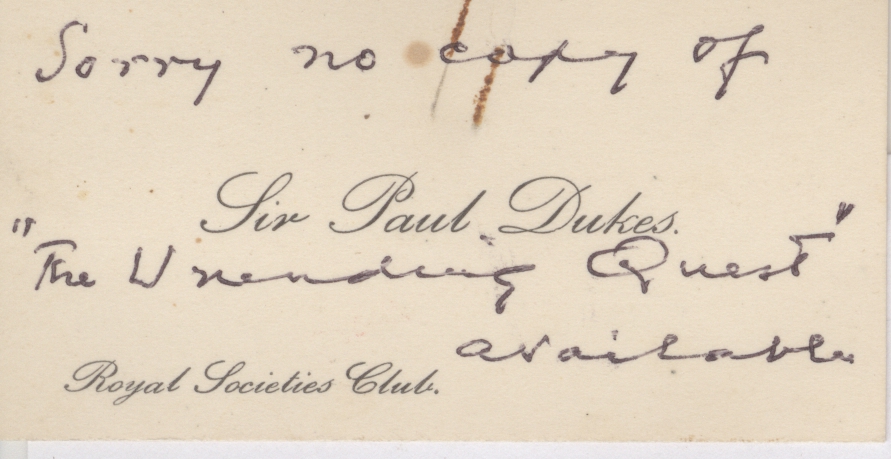 Sorry no copy of
Sir Paul Dukes.
"The Unending Quest"
available
Royal Societies Club.